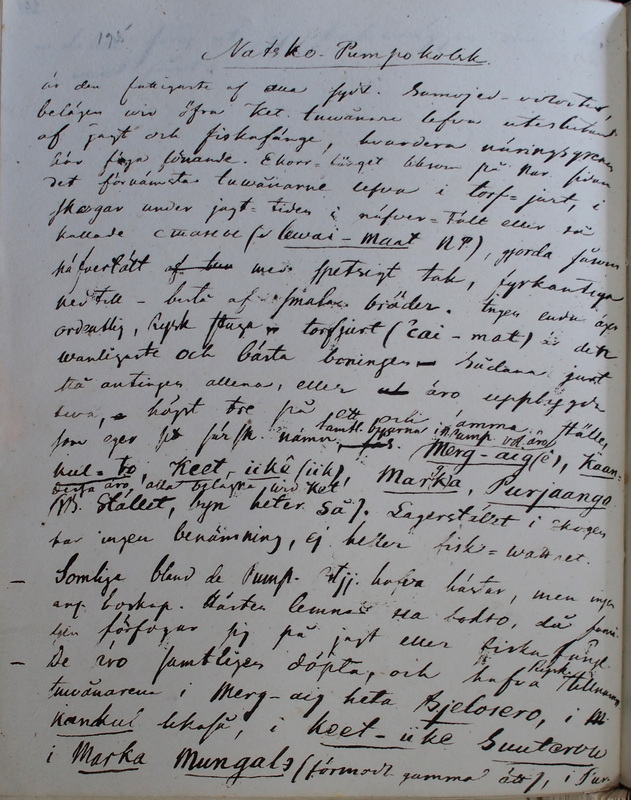 195
Natsko-Pumpokolsk.
är den fattigaste af alla sydl. Samojed-voloster,
belägen wid öfra Ket. Inwånare lefva uteslutand
af jagt och fiskafänge, hvardera näringsgren
här föga lönande.
det förnämsta Inwånarne lefva i torf-jurt, i
skogar under jagt-tiden i näfver-tält eller så
kallade (lewai-maat NP), gjorda såsom
näfvertält med spetsigt tak, fyrkantiga
nedtill - beta af smala bräder. Ingen enda äger
ordentlig, Rysk stuga torfjurt (cai-mat) är det
wanligaste och bästa boningen - Sådana jurt
stå antingen allena, eller äro uppbyggda
twa, högst tre på ett och samma ställe,
som eger sit särsk. namn, samtl. byarna i Pump. vol. äro
Merg-aig(e), Kaan-
kul-to, Keet-ükê (ük), Marka, Purjaanga
dessa äro alla belägna wid Ket
(NB. Stället, byn heter så). Lagerstället i skogen
har ingen benämning, ej heller fisk-wattnet.
- Somliga bland de Pump. Ostj. hafva hästar, men ingen
ann. boskap. Hästen lemnas då
förfogar sig på jagt eller fiskafänge.
- De äro samtligen döpta, och hafva Rysk. tillnamn
inwånarena i Merg-aig heta Bjelosero, i
Kankul likaså, i Keet-üke Gunterow
i Marka Mungals (förmodl. gamma ätt), i Pur-